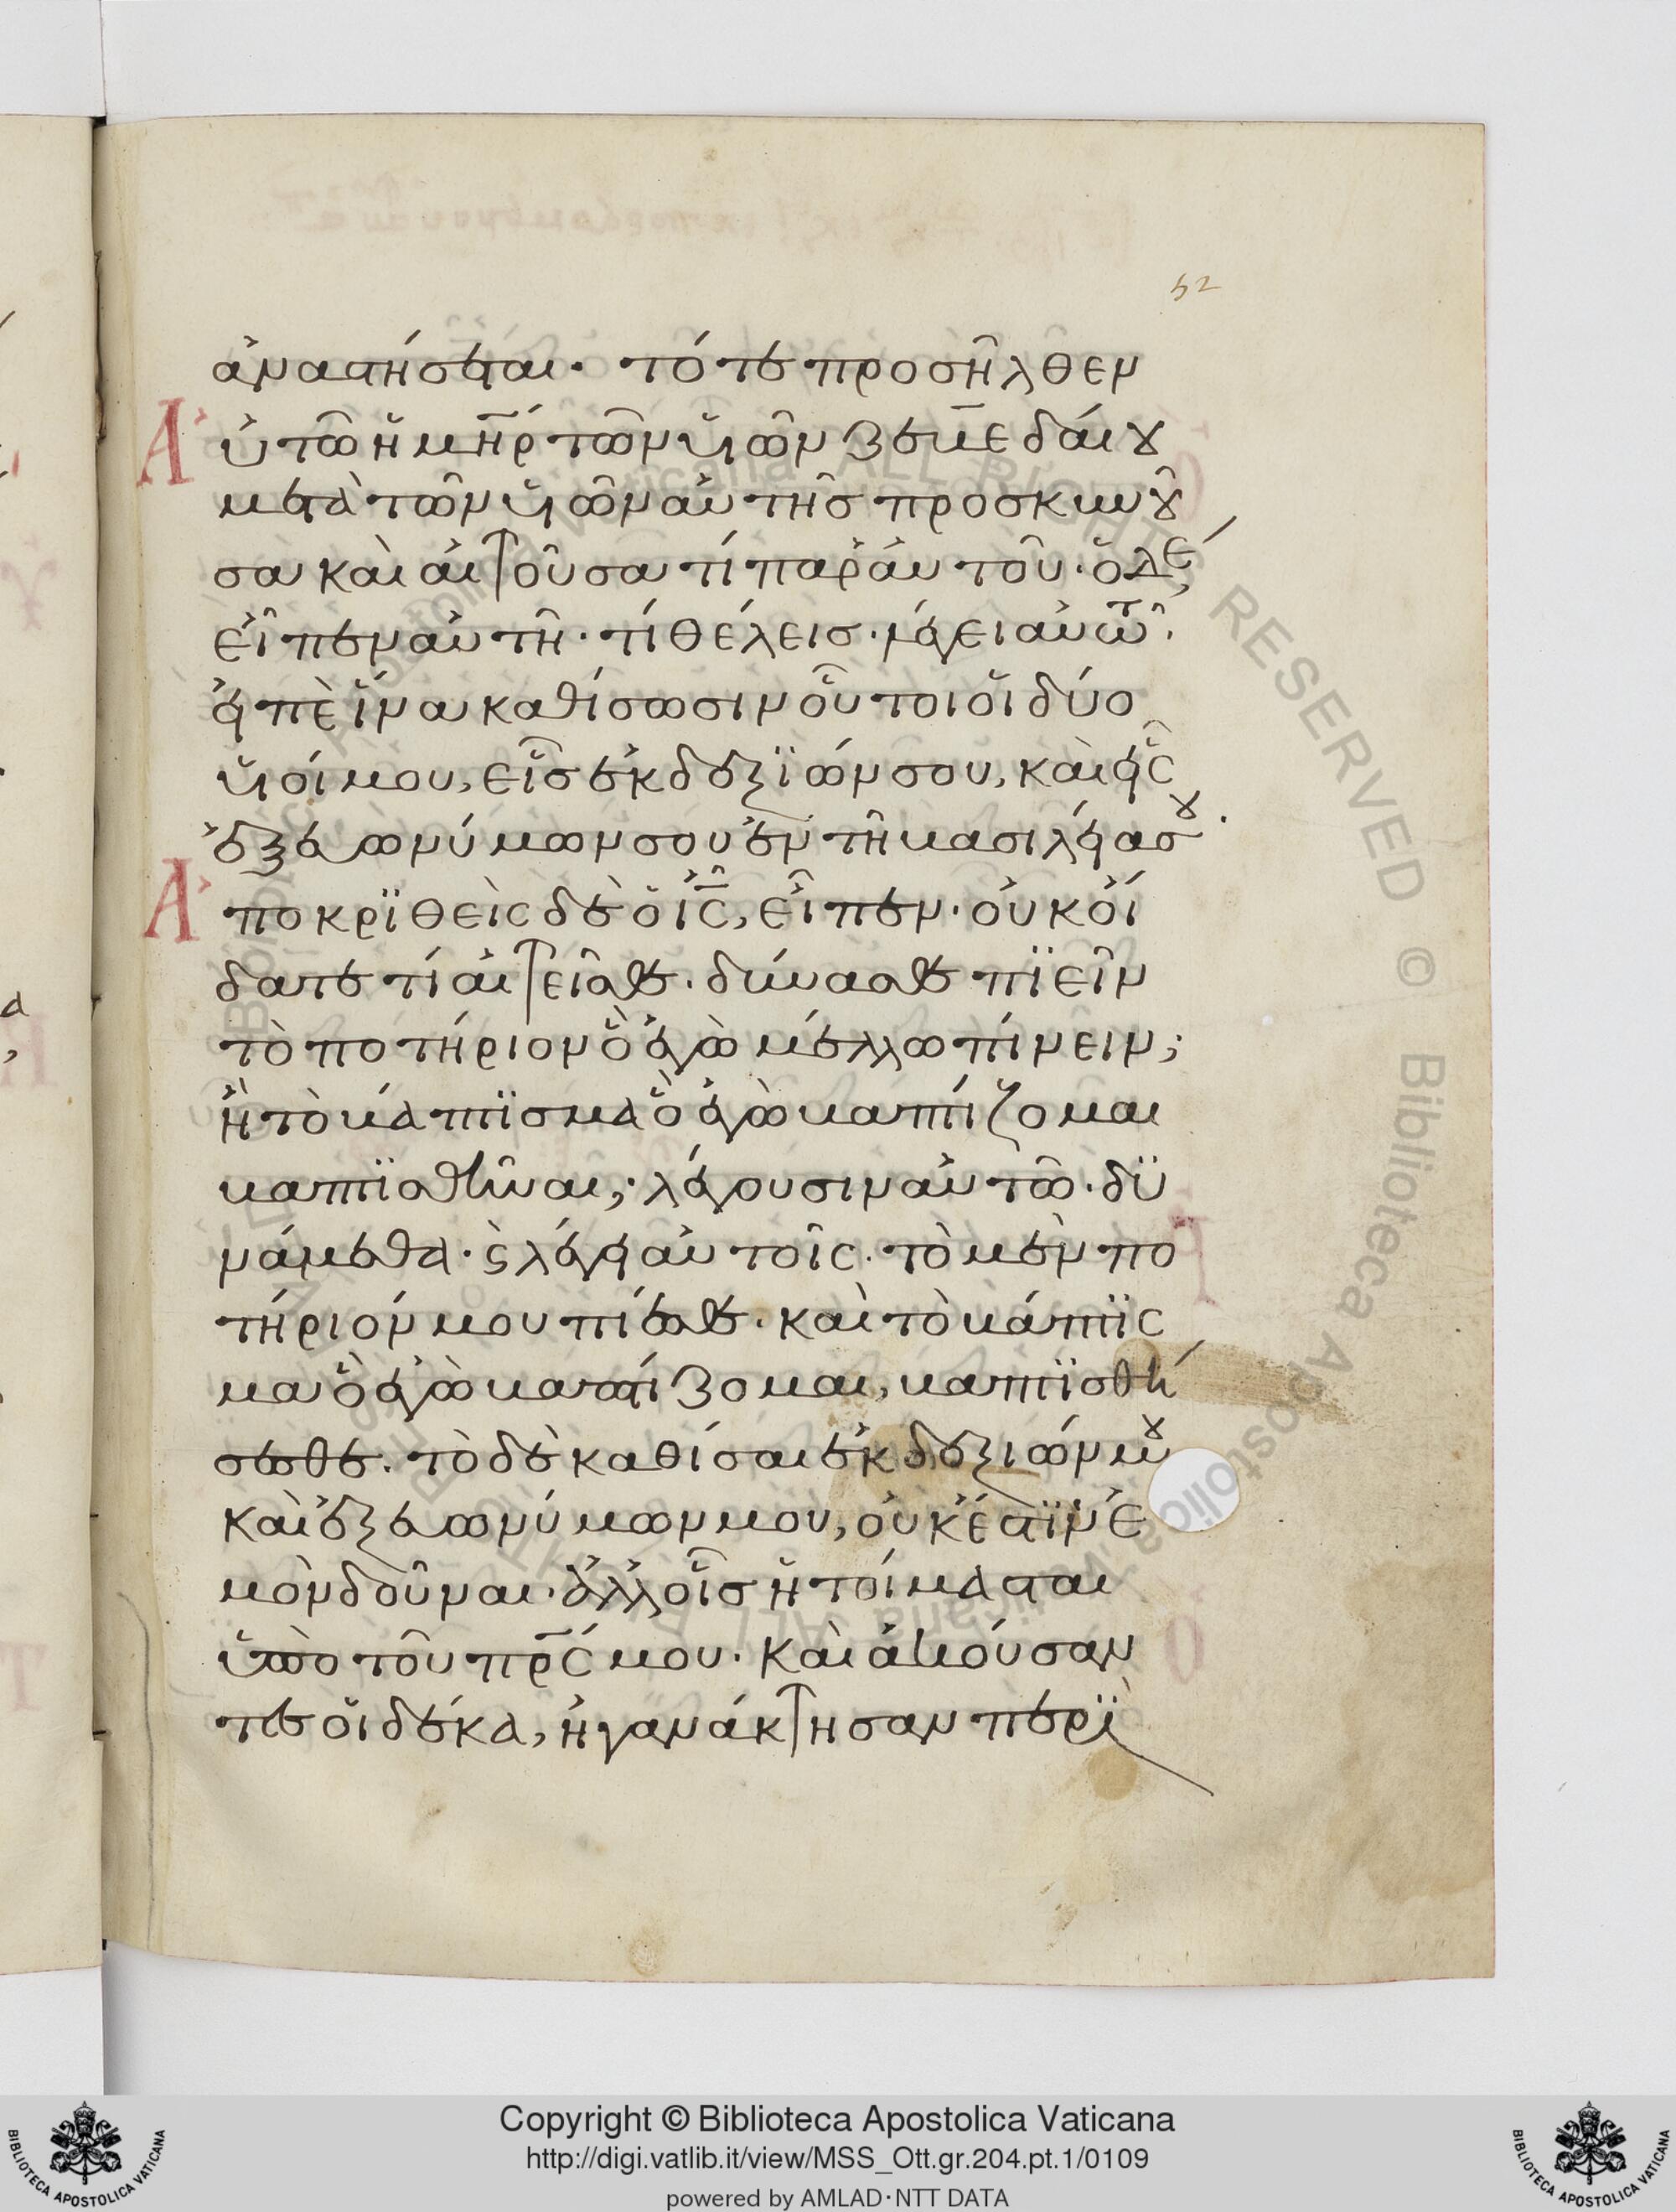 52
ἀναστήσεται· τότε προσῆλθεν
Ἀυτῶ ἡ μη̅ρ τῶν ὑιῶν ζεβεδαίου
μετὰ τῶν ὑιῶν ἀυτῆς προσκυνοῦ
σα καὶ ἀιτοῦσα τί παρ' ἀυτοῦ· ὁ δὲ
εἶπεν ἀυτῆ· τί θέλεις· λέγει ἀυτῶ·
ἐιπὲ ἵνα καθίσωσιν οὗτοι οἱ δύο
ὑιοί μου, εἷς ἐκ δεξϊῶν σου, καὶ εἷς
ἐξ ἐυωνύμων σου ἐν τῆ βασιλεία σου·
Ἀποκρϊθεὶς δὲ ὁ ι̅ς̅, εἶπεν· ὀυκ ὀί
δατε τί ἀιτεῖσθε. δύνασθε πϊεῖν
τὸ ποτήριον ὃ ἐγὼ μέλλω πίνειν;
ἢ τὸ βάπτϊσμα ὃ ἐγὼ βαπτίζομαι
βαπτϊσθῆναι; λέγουσιν ἀυτῶ· δϋ
νάμεθα· ϗ λέγει ἀυτοῖς· τὸ μὲν πο
τήριόν μου πίεσθε· καὶ τὸ βάπτϊς
μα ὃ ἐγὼ βαπτίζομαι, βαπτϊσθή
σεσθε. τὸ δὲ καθίσαι ἐκ δεξιῶν μου
καὶ ἐξ ἐυωνύμων μου, ὀυκ ἔστϊν ἐ
μὸν δοῦναι· ἀλλ' οἷς ἡτοίμασται
ὑπὸ του πρ̅ς μου· καὶ ἀκούσαν
τες οἱ δέκα, ἠγανάκτησαν περϊ
Copyright © Biblioteca Apostolica Vaticana
http://digi.vatlib.it/view/MSS_Ott.gr.204.pt.1/0109
powered by AMLAD·NTT DATA
BIBLIOTECA APOSTOLICA VATICANA
BIBLIOTECA APOSTOLICA VATICANA